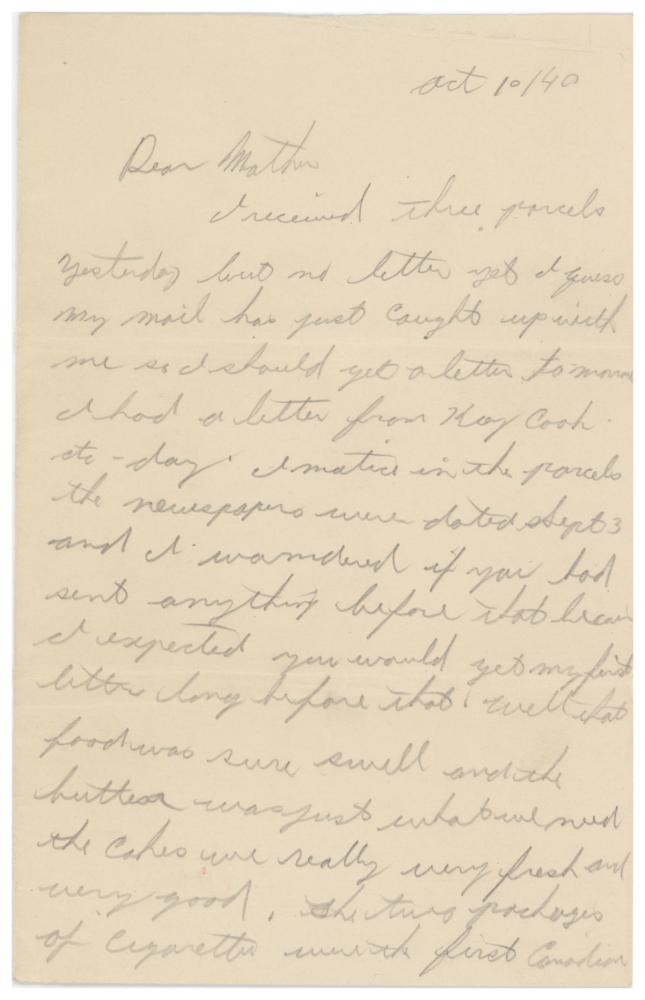 Oct 10/40
Dear Mother
I received three parcels
yesterday but no letter yet I guess
my mail has just caught up with
me so I should get a letter tomorrow
I had a letter from Kay Cook
to-day. I notice in the parcels
the newspapers were dated Sept 3
and I wondered if you had
sent anything before that because
I expected you would get my first
letter long before that. Well that
food was sure swell and the
butter was just what we need
the cakes were really very fresh and
very good. The two packages
of cigarettes were the first Canadian